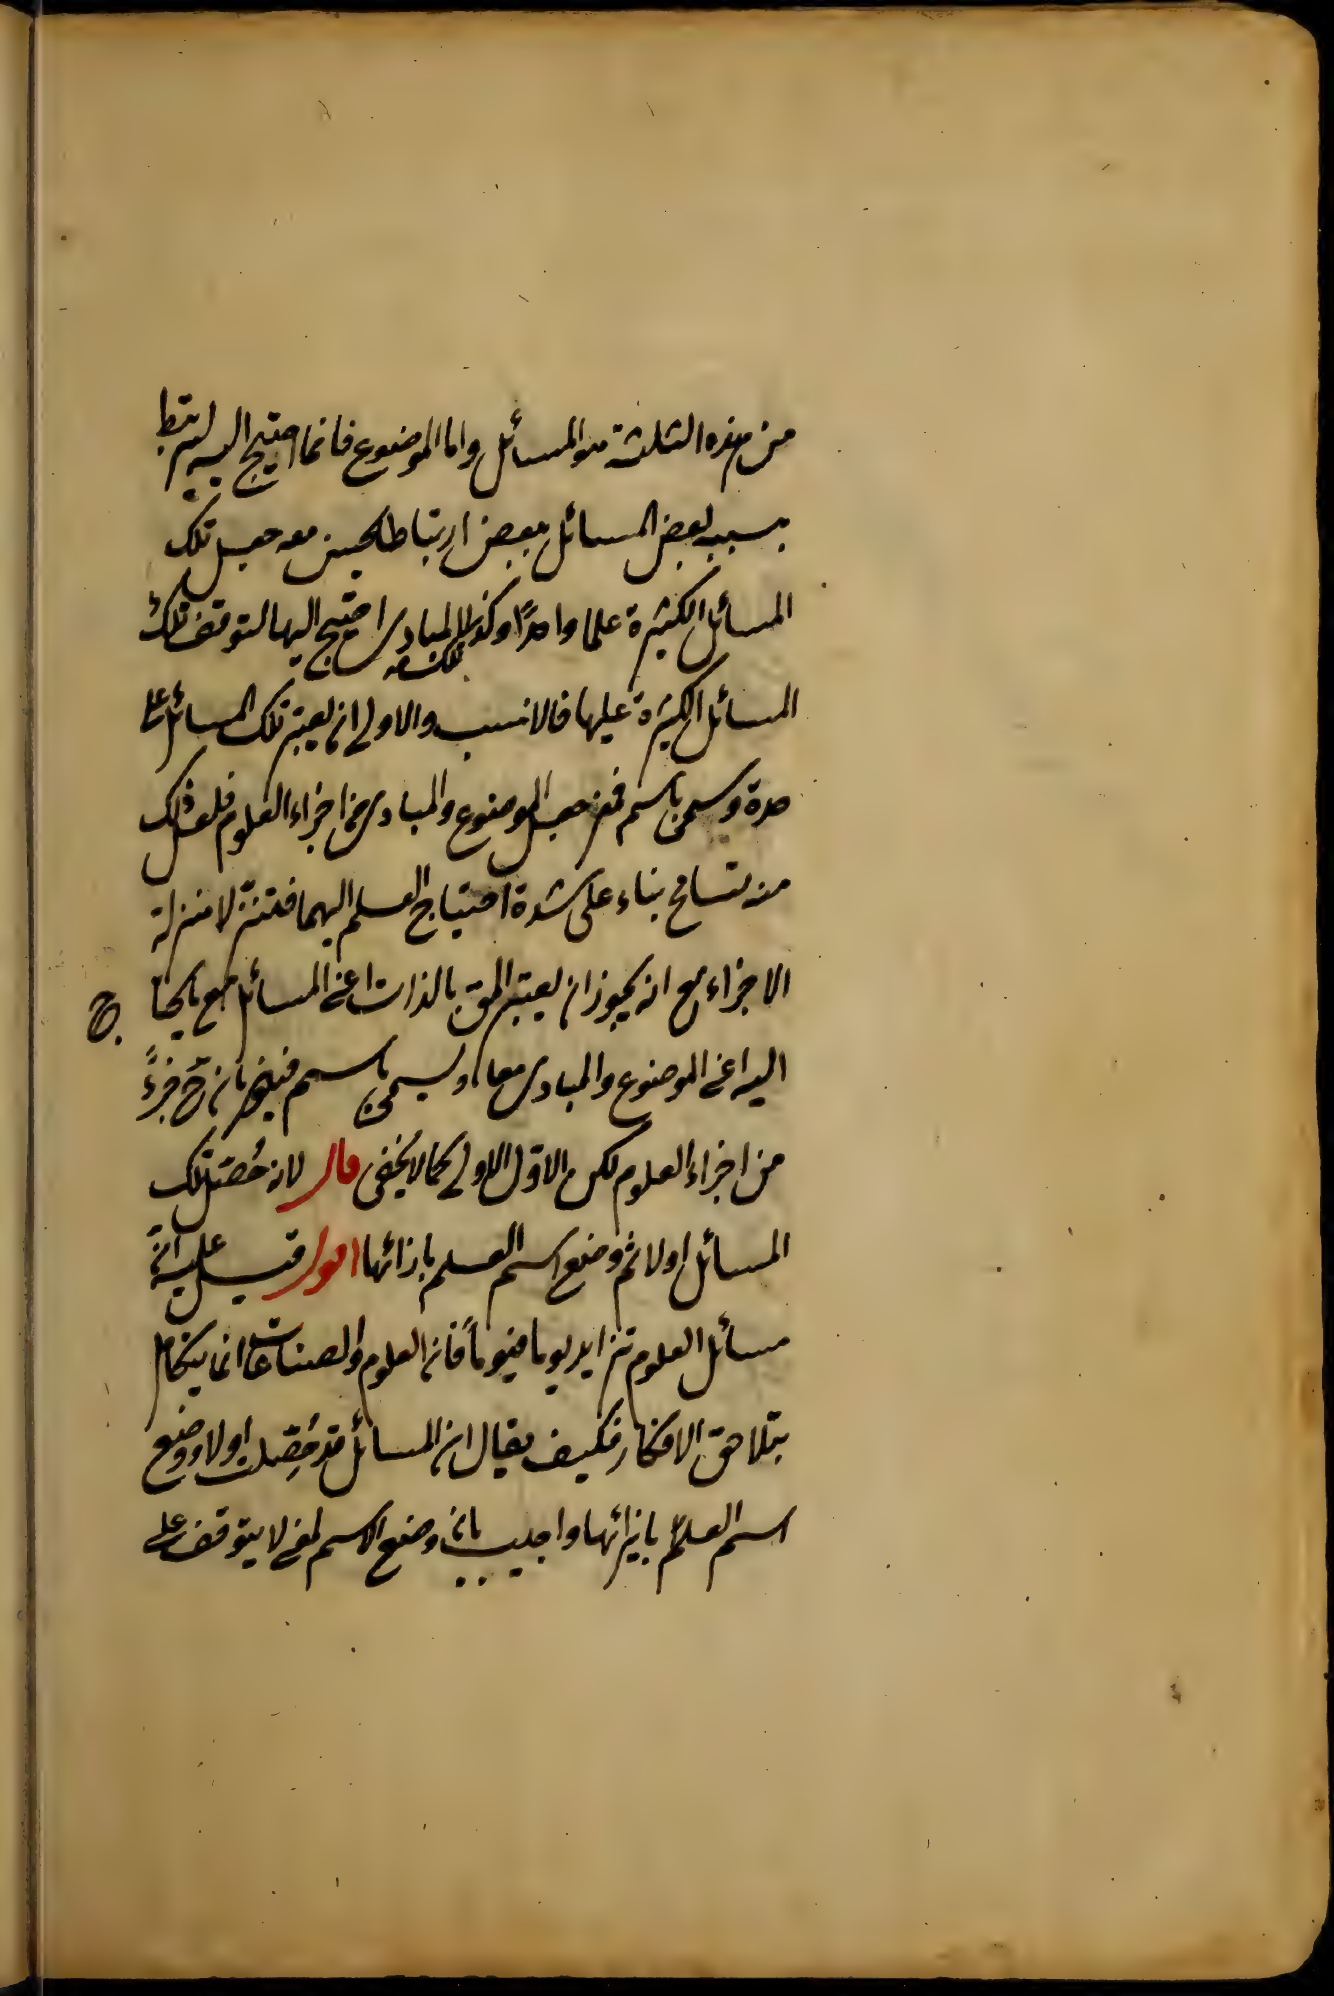 من هذه الثلثة هو المسائل واما الموضوع فانما احتيج اليه ليرتبط
بسببه بعض المسائل ببعض ارتباطا يحسن معه جعل تلك
المسائل الكثيرة علما واحدًا وكذا المبادى احتيج اليها لتوقف تلك
المسائل الكثيرة عليها فالانسب والاولى ان يعتبر تلك المسائل على
حدة وسمى باسم فمن جعل الموضوع والمبادى من اجزاء العلوم فلعل ذلك
منه تسامح بناء على شدة احتياج العلم اليهما فتنزلا منزلة
الاجزاء مع انه يجوز ان يعتبر المق بالذات اعنى المسائل مع ما يحتاج
اليه اعنى الموضوع والمبادى معا ويسمى باسم فيكونان ح جزءً
من اجزاء العلوم لكن الاول اولى كما لا يخفى قال لانه حُصّل تلك
المسائل اولا ثم وضع اسم العلم بازائها اقول قيل عليه انّ
مسائل العلوم تتزايد يوما فيوماً فان العلوم والصناعات انما يتكامل
بتلاحق الافكار فكيف يقال ان المسائل قد حُصّلت اولا ووضع
اسم العلم بازائها واجيب بان وضع الاسم لمعنى لا يتوقف على